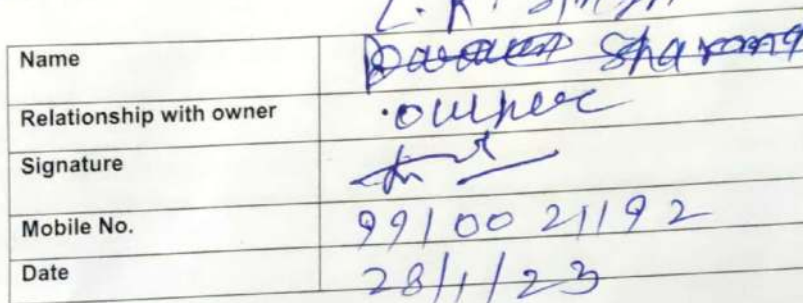 Name Sharma
Relationship with owner owner
Signature
Mobile No. 9910021192
Date 28/1/23